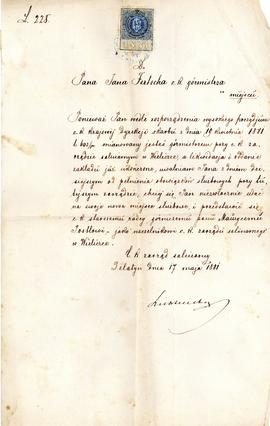 L. 228.
D.
Pana Jana Fritscha c.k. górmistrza
w miejscu
Ponieważ Pan wedle rozporządzenia wysokiego
c k Krajowej Dyrekcji skarbu z dnia 19 Kwietnia 1881
mianowany jesteś górmistrzem przy c.k. za-
rządzie salinarnym w Wieliczce, a likwidacja i oddanie
zakładu już ukończone, uwalniam Pana z dniem dzi-
siejszym od pełnienia obowiązków służbowych przy tu-
tejszym zarządzie, chciej się Pan niezwłocznie udać
na swoje nowe miejsce służbowe, i przedstawić się
c.k. starszemu radcy górniczemu panu
jako naczelnikowi c. k. zarządu salinarnego
w Wieliczce.
C k zarząd salinarny
Delatyn dnia 17 maja 1881